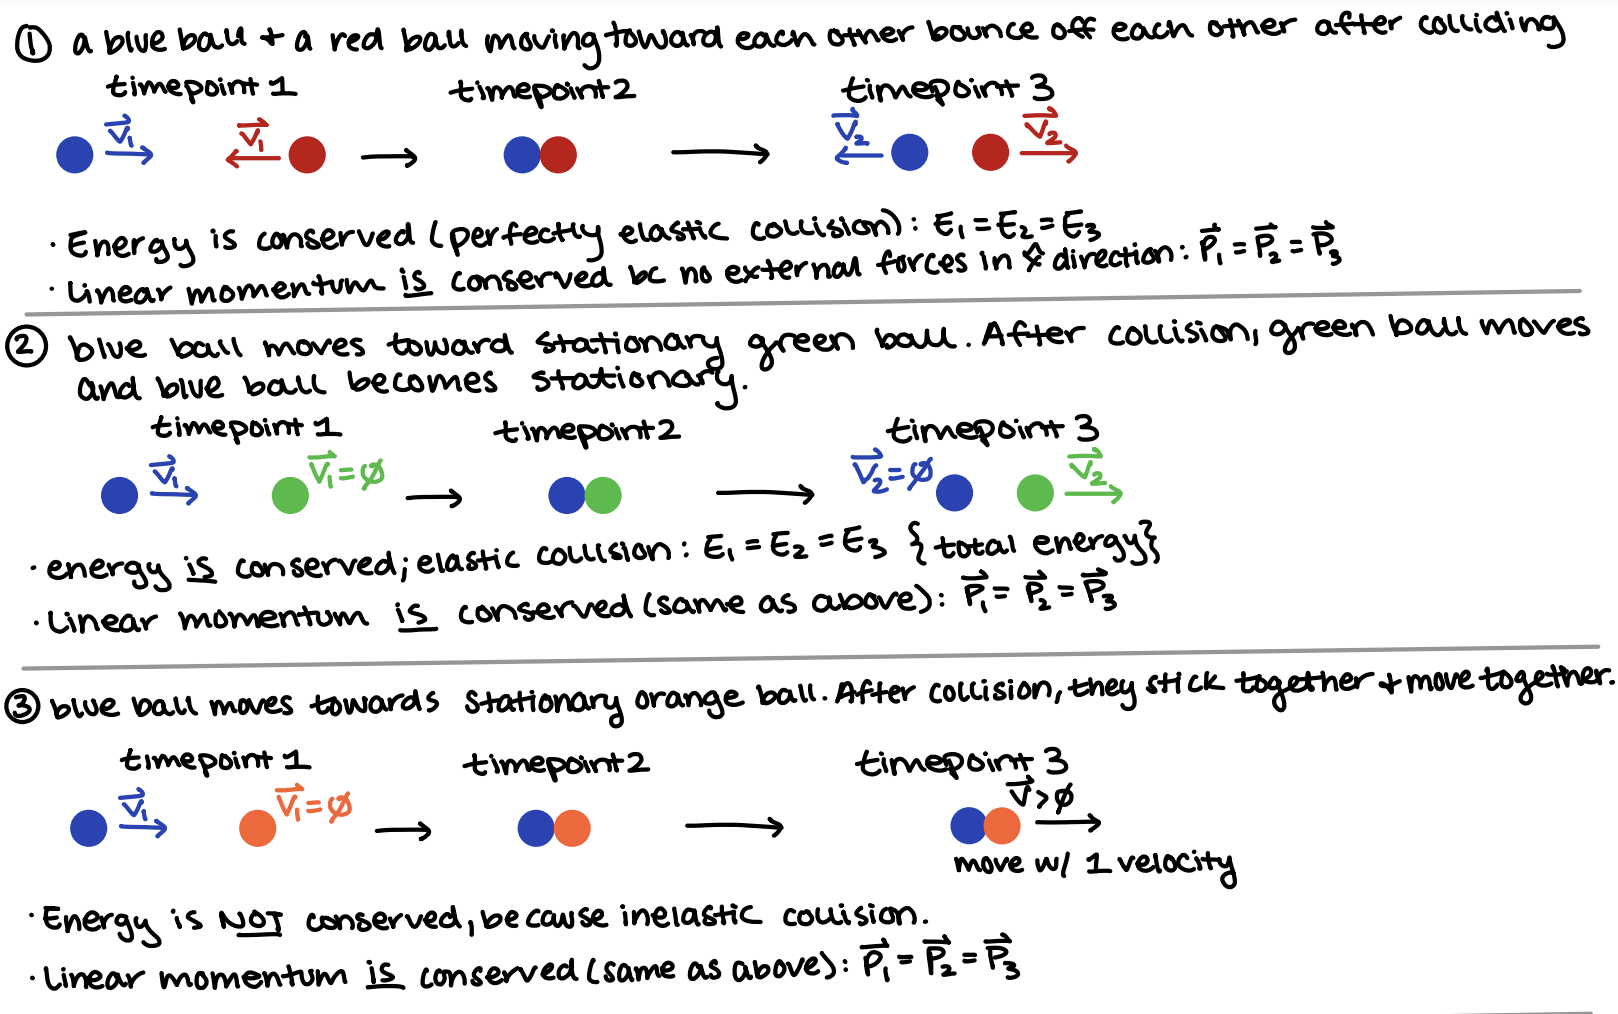 ① a blue ball + a red ball moving toward each other bounce off each other after colliding
timepoint 1 timepoint 2 timepoint 3
V⃗₁ V⃗₁ V⃗₂ V⃗₂
· Energy is conserved (perfectly elastic collision): E₁ = E₂ = E₃
· Linear momentum is conserved bc no external forces in x̂ direction: P⃗₁ = P⃗₂ = P⃗₃
② blue ball moves toward stationary green ball. After collision, green ball moves
and blue ball becomes stationary.
timepoint 1 timepoint 2 timepoint 3
V⃗₁ V⃗₁=∅ V⃗₂=∅ V⃗₂
· energy is conserved; elastic collision: E₁ = E₂ = E₃ {total energy}
· Linear momentum is conserved (same as above): P⃗₁ = P⃗₂ = P⃗₃
③ blue ball moves towards stationary orange ball. After collision, they stick together + move together.
timepoint 1 timepoint 2 timepoint 3
V⃗₁ V⃗₁=∅ V⃗>∅
move w/ 1 velocity
· Energy is NOT conserved, because inelastic collision.
· Linear momentum is conserved (same as above): P⃗₁ = P⃗₂ = P⃗₃